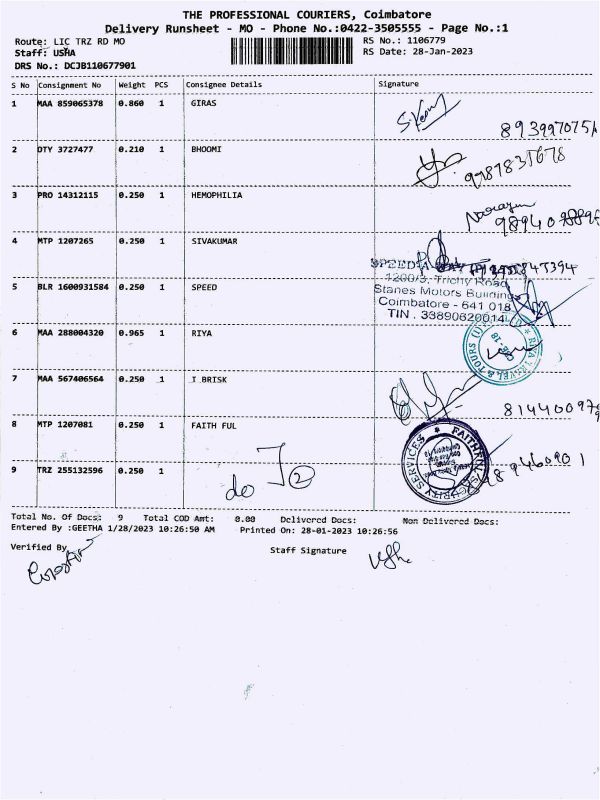 THE PROFESSIONAL COURIERS, Coimbatore
Delivery Runsheet - MO - Phone No.:0422-3505555 - Page No.:1
Route: LIC TRZ RD MO RS No.: 1106779
Staff: USHA RS Date: 28-Jan-2023
DRS No.: DCJB110677901
S No Consignment No Weight PCS Consignee Details Signature
1 MAA 859065378 0.860 1 GIRAS
2 DTY 3727477 0.210 1 BHOOMI
3 PRO 14312115 0.250 1 HEMOPHILIA
4 MTP 1207265 0.250 1 SIVAKUMAR
5 BLR 1600931584 0.250 1 SPEED
1200/3, Trichy Road
Stanes Motors Building
Coimbatore - 641 018
TIN . 33890620014
6 MAA 288004320 0.965 1 RIYA
7 MAA 567406564 0.250 1 I BRISK
8 MTP 1207081 0.250 1 FAITH FUL
9 TRZ 255132596 0.250 1
Total No. Of Docs: 9 Total COD Amt: 0.00 Delivered Docs: Non Delivered Docs:
Entered By :GEETHA 1/28/2023 10:26:50 AM Printed On: 28-01-2023 10:26:56
Verified By Staff Signature